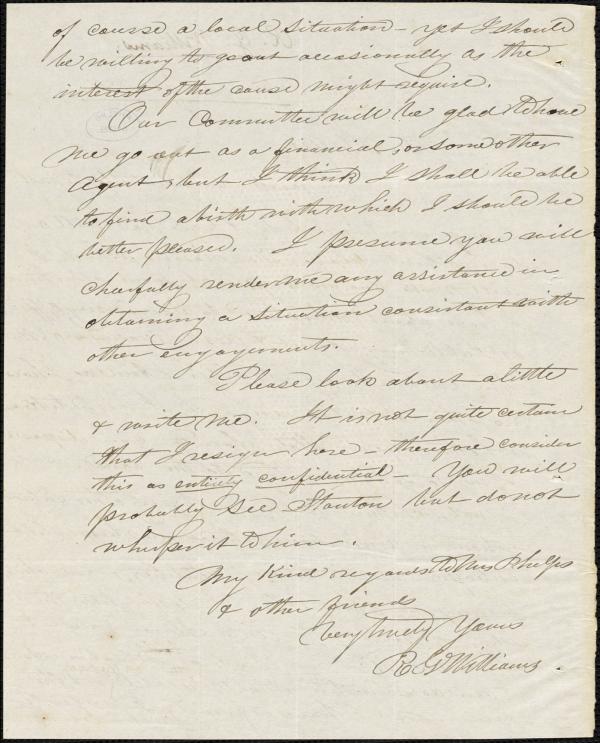 of course a local situation – yet I should
be willing to go out occasionally as the
interest of the cause might require.
Our Committee will be glad to have
me go out as a financial, or some other
agent, but I think I shall be able
to find a birth with which I should be
better pleased. I presume you will
cheerfully render me any assistance in
obtaining a situation consistant with
other engagements.
Please look about a little
& write me. It is not quite certain
that I resign here – therefore consider
this as entirely confidential – You will
probably see Stanton but do not
whisper it to him.
My kind regards to Mrs Phelps
& other friends
Very truly Yours
R. G. Williams.